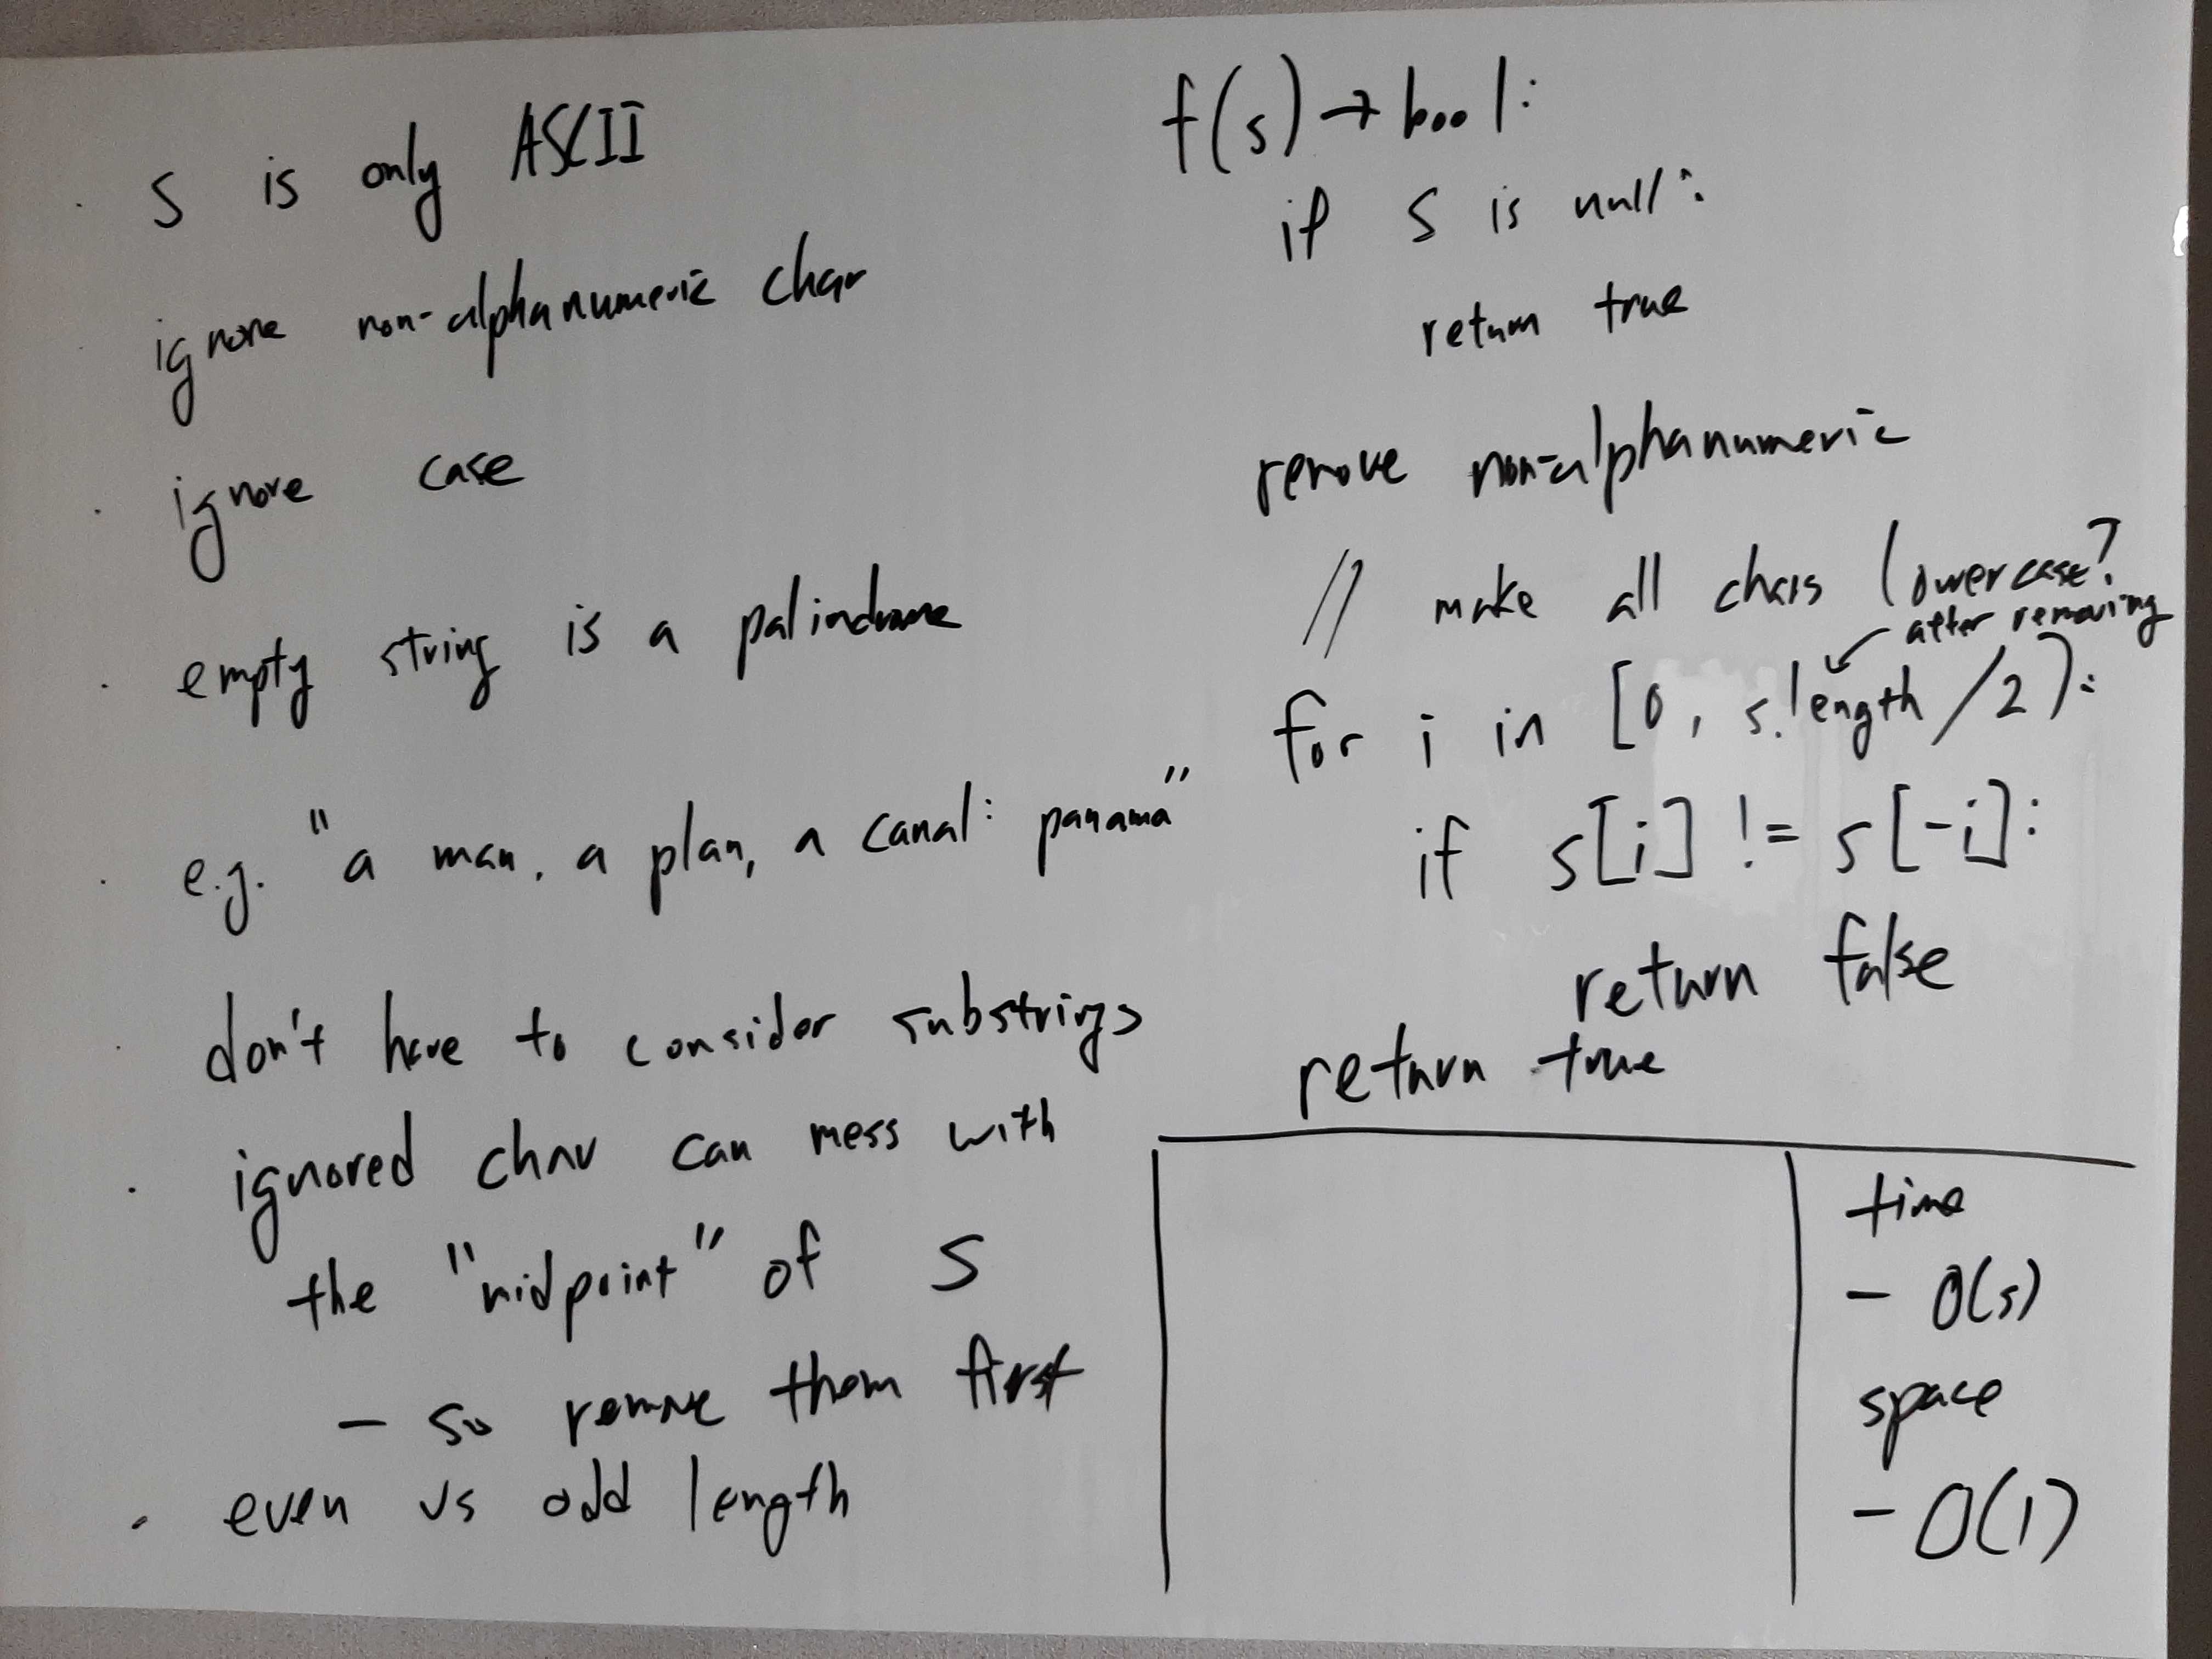 · s is only ASCII
ignore non-alphanumeric char
· ignore case
· empty string is a palindrome
· e.g. "a man, a plan, a canal: panama"
· don't have to consider substrings
· ignored char can mess with
the "midpoint" of s
- so remove them first
· even vs odd length
f(s) → bool:
if s is null:
return true
remove non-alphanumeric
// make all chars lowercase?
after removing
for i in [0, s.length/2):
if s[i] != s[-i]:
return false
return true
time
- O(s)
space
- O(1)